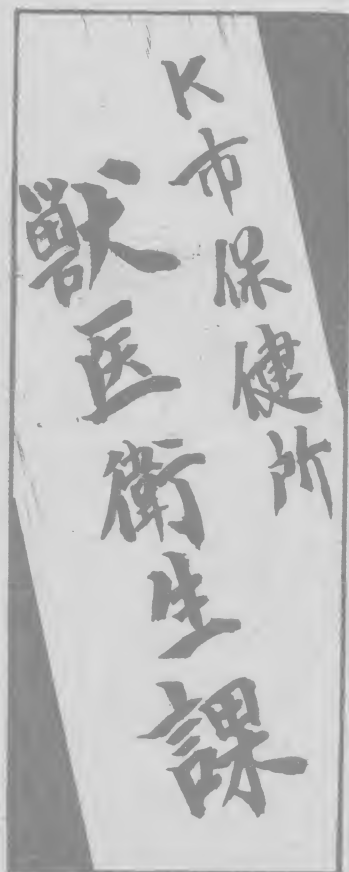 K市保健所
獣医衛生課